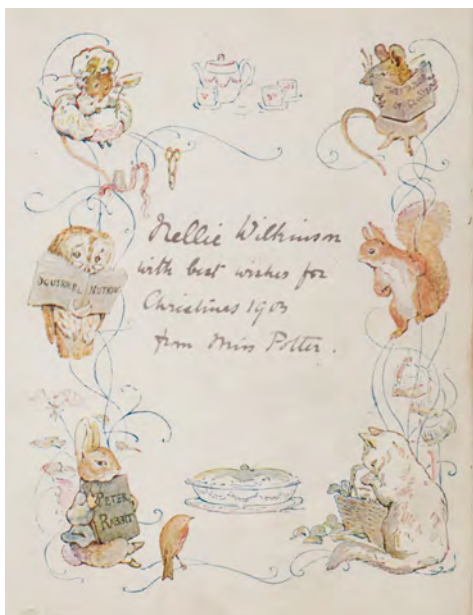 Nellie Wilkinson
with best wishes for
Christmas 1903
from Miss Potter.
SQUIRREL NUTKIN
PETER
RABBIT